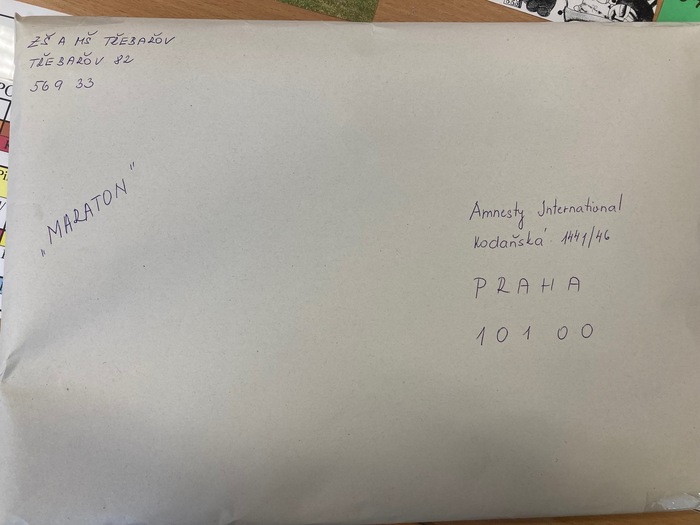 ZŠ A MŠ TŘEBAŘOV
TŘEBAŘOV 82
569 33
„MARATON"
Amnesty International
Kodaňská 1441/46
PRAHA
101 00